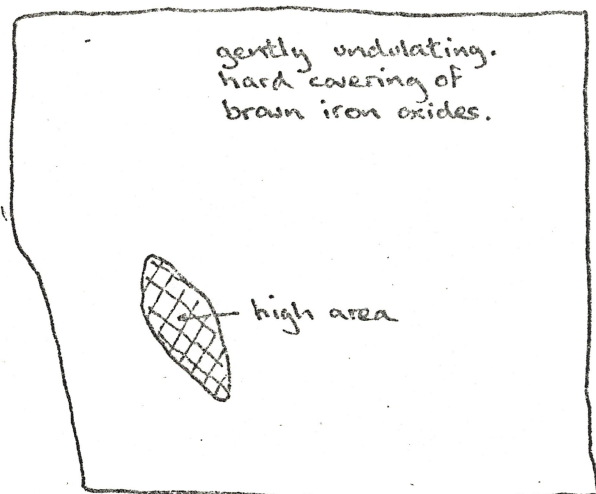 gently undulating.
hard covering of
brown iron oxides.
high area